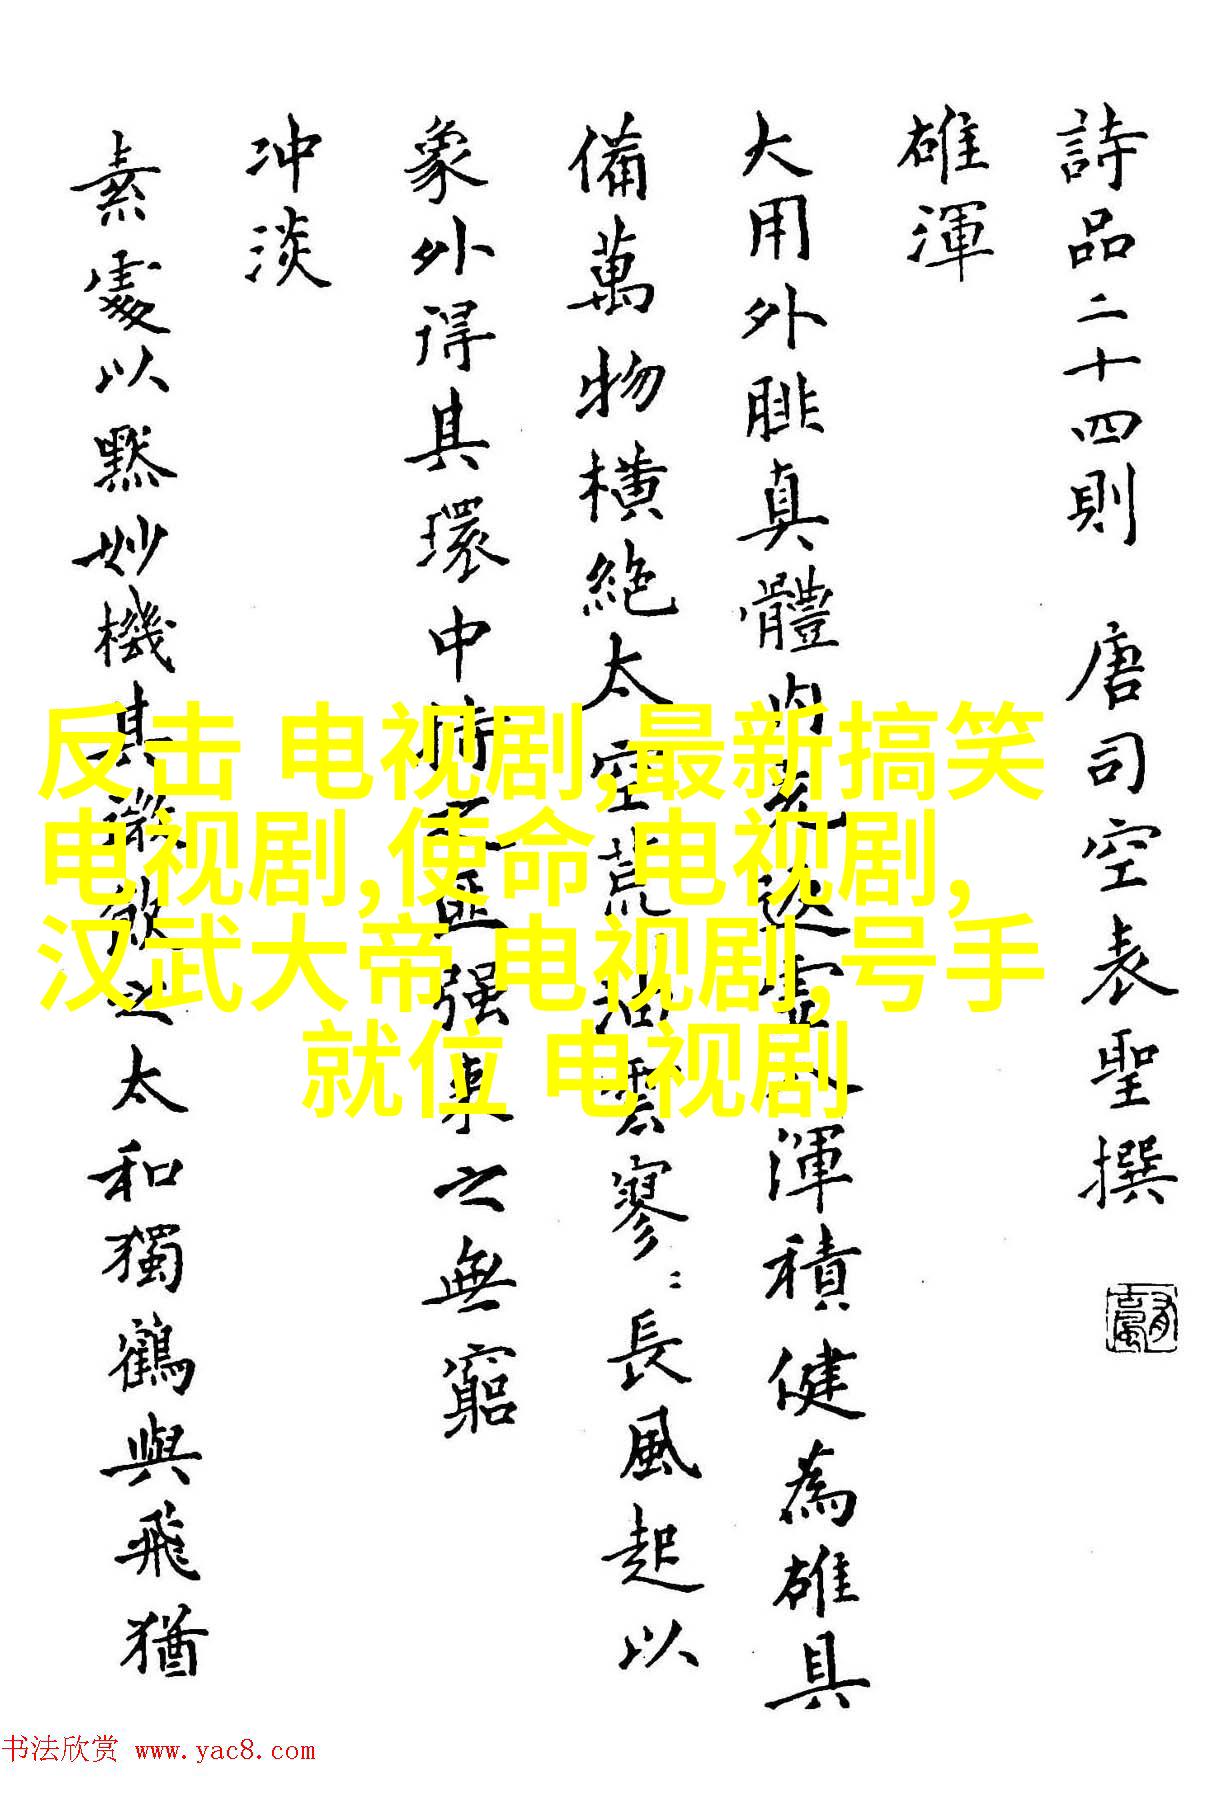 詩品二十四則 唐司空表聖撰
雄渾
大用外腓真體內充返虛入渾積健為雄具
備萬物橫絕太空荒荒油雲寥〻長風起以
象外得其環中持之匪强來之無窮
冲淡
素處以黙妙機其微飲之太和獨鶴與飛猶
反击 电视剧,最新搞笑
电视剧,使命 电视剧,
汉武大帝 电视剧,号手
就位 电视剧
书法欣赏 www.yac8.com